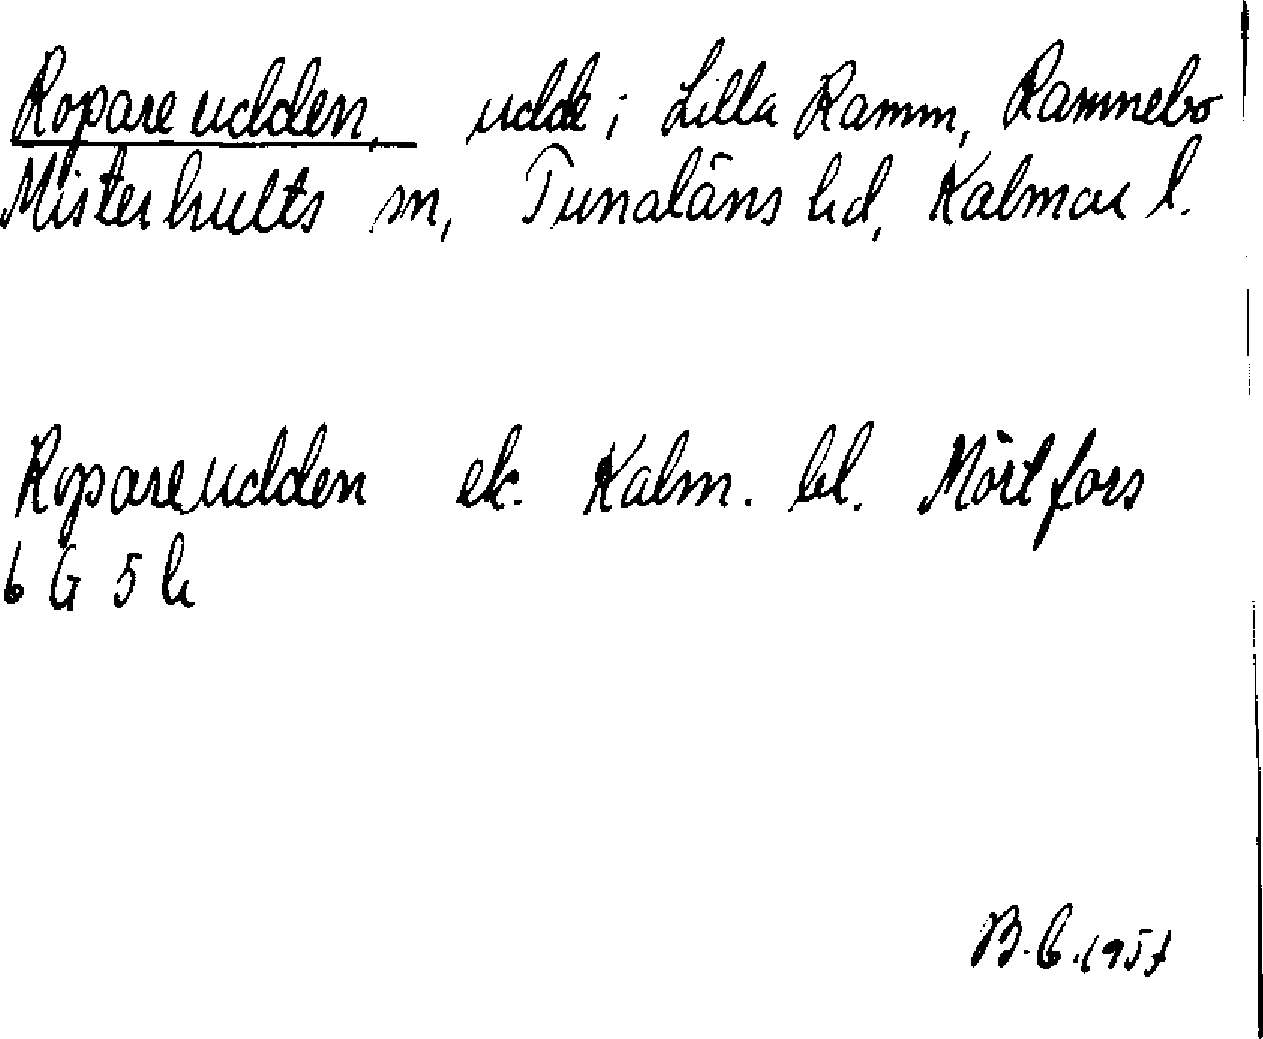 Ropareudden, udde i Lilla Ramm, Rammebo
Misterhults sn, Tunaläns hd, Kalmar l.
Ropareudden ek. Kalm. bl. Mörtfors
6 G 5 h
B. C. 1957